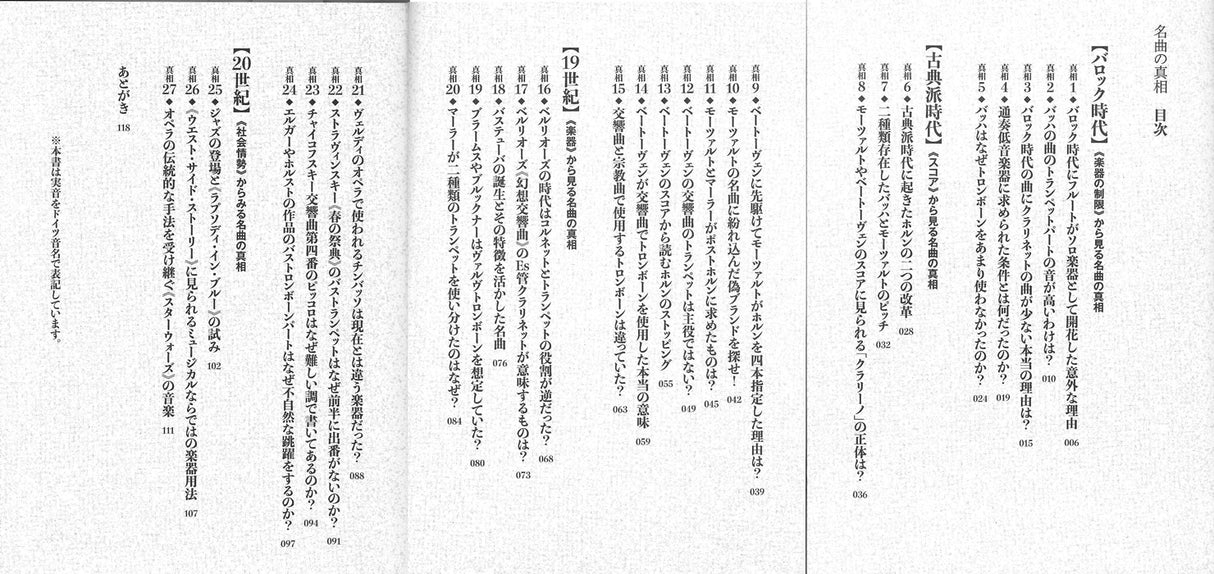 名曲の真相　目次
【バロック時代】《楽器の制限》から見る名曲の真相
真相1◆バロック時代にフルートがソロ楽器として開花した意外な理由 006
真相2◆バッハの曲のトランペットパートの音が高いわけは? 010
真相3◆バロック時代の曲にクラリネットの曲が少ない本当の理由は? 015
真相4◆通奏低音楽器に求められた条件とは何だったのか? 019
真相5◆バッハはなぜトロンボーンをあまり使わなかったのか? 024
【古典派時代】《スコア》から見る名曲の真相
真相6◆古典派時代に起きたホルンの二つの改革 028
真相7◆二種類存在したバッハとモーツァルトのピッチ 032
真相8◆モーツァルトやベートーヴェンのスコアに見られる「クラリーノ」の正体は? 036
真相9◆ベートーヴェンに先駆けてモーツァルトがホルンを四本指定した理由は? 039
真相10◆モーツァルトの名曲に紛れ込んだ偽ブランドを探せ! 042
真相11◆モーツァルトとマーラーがポストホルンに求めたものは? 045
真相12◆ベートーヴェンの交響曲のトランペットは主役ではない? 049
真相13◆ベートーヴェンのスコアから読むホルンのストッピング 055
真相14◆ベートーヴェンが交響曲でトロンボーンを使用した本当の意味 059
真相15◆交響曲と宗教曲で使用するトロンボーンは違っていた? 063
【19世紀】《楽器》から見る名曲の真相
真相16◆ベルリオーズの時代はコルネットとトランペットの役割が逆だった? 068
真相17◆ベルリオーズ《幻想交響曲》のEs管クラリネットが意味するものは? 073
真相18◆バステューバの誕生とその特徴を活かした名曲 076
真相19◆ブラームスやブルックナーはヴァルヴトロンボーンを想定していた? 080
真相20◆マーラーが二種類のトランペットを使い分けたのはなぜ? 084
真相21◆ヴェルディのオペラで使われるチンバッソは現在とは違う楽器だった? 088
真相22◆ストラヴィンスキー《春の祭典》のバストランペットはなぜ前半に出番がないのか? 091
真相23◆チャイコフスキー交響曲第四番のピッコロはなぜ難しい調で書いてあるのか? 094
真相24◆エルガーやホルストの作品のバストロンボーンパートはなぜ不自然な跳躍をするのか? 097
【20世紀】《社会情勢》からみる名曲の真相
真相25◆ジャズの登場と《ラプソディ・イン・ブルー》の試み 102
真相26◆《ウエスト・サイド・ストーリー》に見られるミュージカルならではの楽器用法 107
真相27◆オペラの伝統的な手法を受け継ぐ《スターウォーズ》の音楽 111
あとがき 118
※本書は実音をドイツ音名で表記しています。